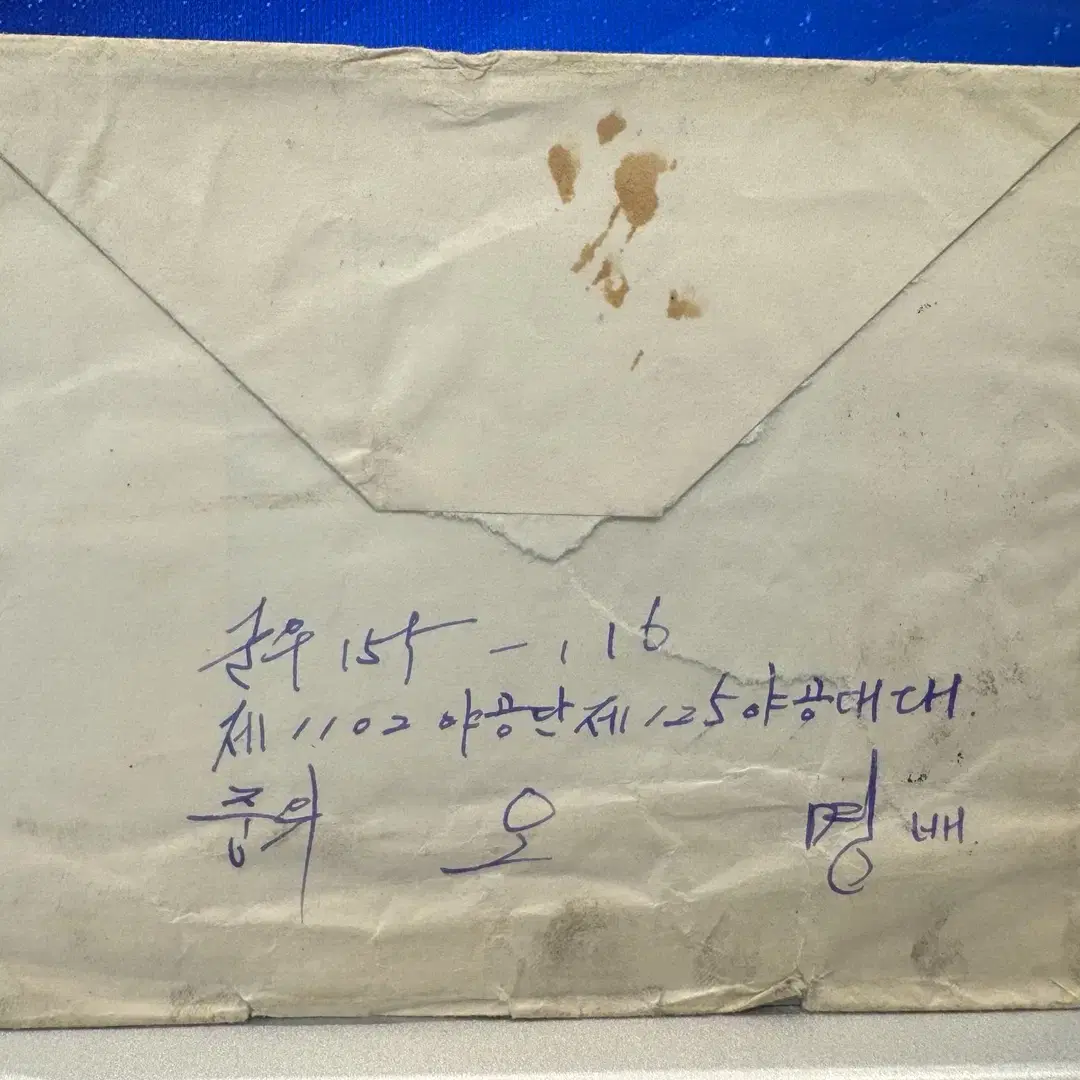 군우 155-116
제1102야공단제125야공대대.
중위 오 명 배